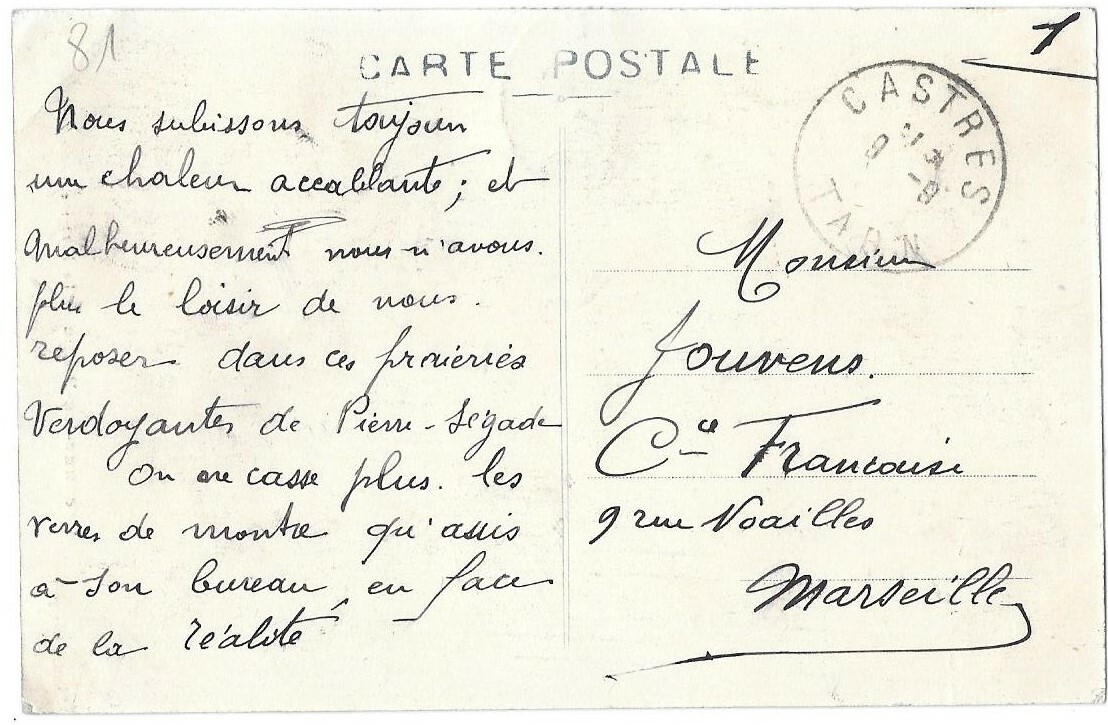 81
CARTE POSTALE
1
CASTRES
TARN
Nous subissons toujours
une chaleur accablante; et
malheureusement nous n'avons.
plus le loisir de nous.
reposer dans ces praieries
Verdoyantes de Pierre-Ségade
On ne casse plus. les
verres de montre qu'assis
à son bureau, en face
de la réalité
Monsieur
Jouvens.
Cie Francaise
9 rue Noailles
Marseille